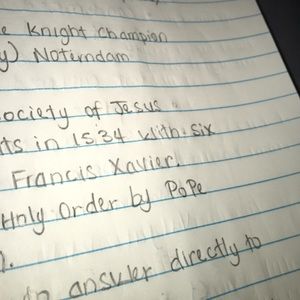 e Knight Champion
y) Noterndam
ociety of Jesus
ts in 1534 with six
Francis Xavier,
Holy Order by Pope
).
to answer directly to